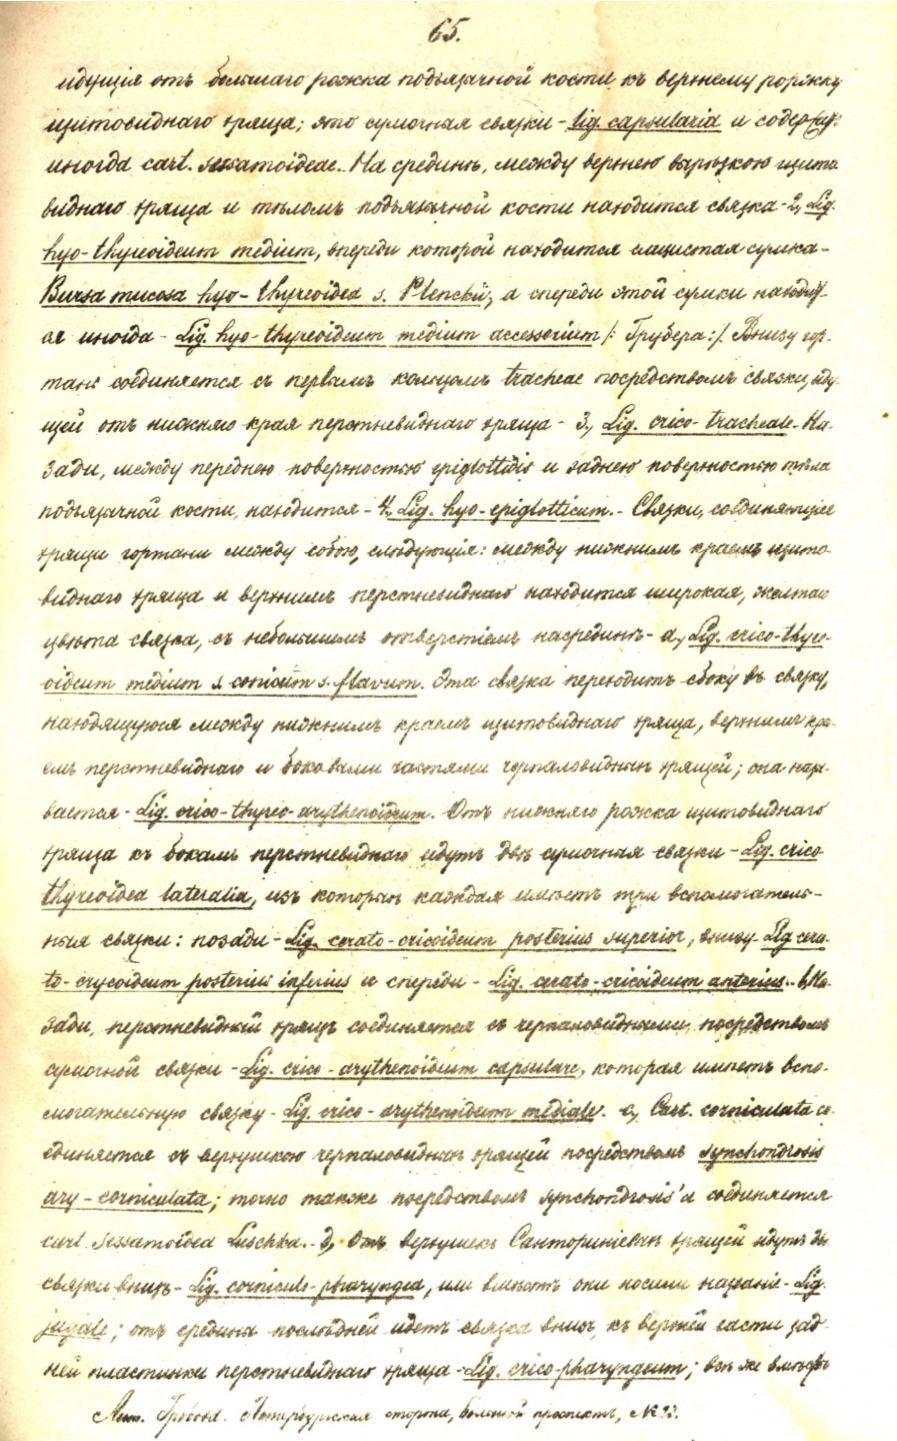 65.
идущія отъ большаго рожка подъязычной кости къ верхнему рожку
щитовиднаго хряща; это сумочная связки - lig. capsularia и содерж:
иногда cart. sessamoideae. На срединѣ, между верхнею вырѣзкою щито
виднаго хряща и тѣломъ подъязычной кости находится связка - 2, Lig.
hyo-thyreoideum medium, впереди которой находится слизистая сумка -
Bursa mucosa hyo-thyreoidea s. Plenckii, а спереди этой сумки находит-
ся иногда - Lig. hyo-thyreoideum medium accessorium /: Грубера :/. Внизу гор-
тань соединяется съ первымъ кольцомъ tracheae посредствомъ связки, иду-
щей отъ нижняго края перстневиднаго хряща - 3, Lig. crico-tracheale. На-
зади, между переднею поверхностью epiglottidis и заднею поверхностью тѣла
подъязычной кости, находится - 4, Lig. hyo-epiglotticum. - Связки, соединяющіе
хрящи гортани между собою, слѣдующія: между нижнимъ краемъ щито-
виднаго хряща и верхнимъ перстневиднаго находится широкая, желтаго
цвѣта связка, съ небольшимъ отверстіемъ насрединѣ - a, Lig. crico-thyre-
oideum medium s. conicum s. flavum. Эта связка переходитъ сбоку въ связку,
находящуюся между нижнимъ краемъ щитовиднаго хряща, верхнимъ кра-
емъ перстневиднаго и боковыми частями черпаловидныхъ хрящей; она назы-
вается - Lig. crico-thyreo-arythenoideum. Отъ нижняго рожка щитовиднаго
хряща къ бокамъ перстневиднаго идутъ двѣ сумочная связки - Lig. crico
thyreoidea lateralia, изъ которыхъ каждая имѣетъ три вспомогатель-
ныя связки: позади - Lig. cerato-cricoideum posterius superior, внизу - Lig cera-
to-crycoideum posterius inferius и спереди - Lig. cerato-cricoideum anterius. - b, На-
зади, перстневидный хрящъ соединяется съ черпаловидными, посредствомъ
сумочной связки - Lig. crico-arythenoideum capsulare, которая имѣетъ вспо-
могательную связку - Lig. crico-arythenoideum mediale. c, Cart. corniculata со-
единяется съ верхушкою черпаловидныхъ хрящей посредствомъ synchondrosis
ary-corniculata; точно также посредствомъ synchondrosis'а соединяется
cart. sessamoidea Luschka. - d, Отъ верхушекъ Санториніевыхъ хрящей идутъ двѣ
связки внизъ - Lig. corniculo-pharyngea, или вмѣстѣ они носили названіе - Lig.
jugale; отъ средины послѣдней идетъ связка внизъ, къ верхней части зад-
ней пластинки перстневиднаго хряща - Lig. crico-pharyngeum; всѣ же вмѣстѣ
Лит. Гробова. Петербургская сторона, большой проспектъ, №